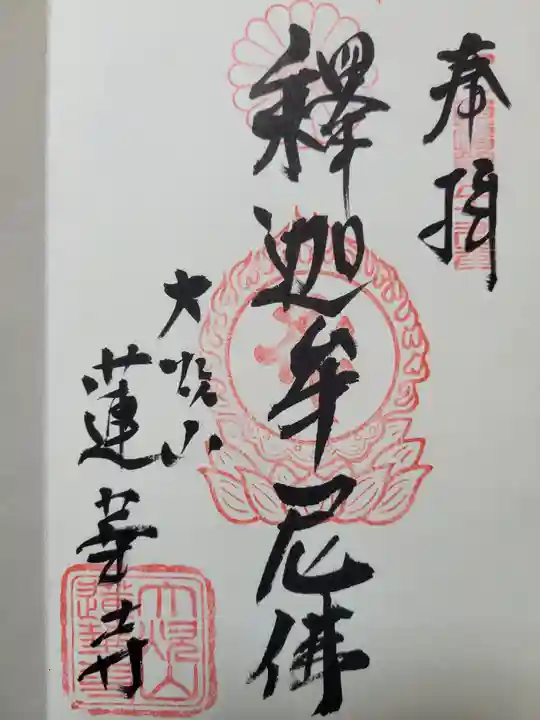 奉拝
釋迦牟尼佛
大焔山
蓮華寺